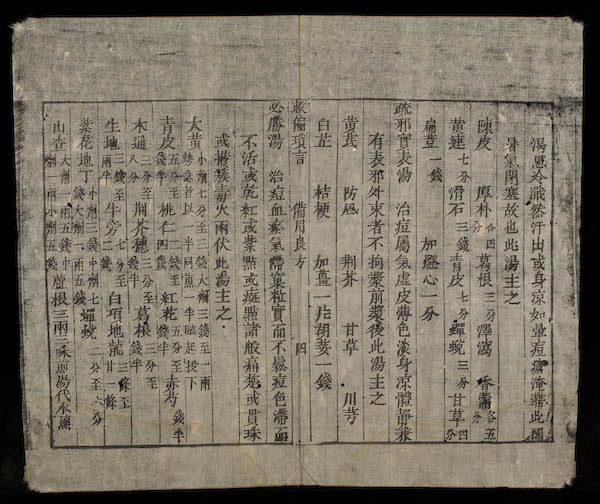 冷戰然汗出或身涼如常痘瘡淹滯此因
暑氣閉塞故也此湯主之
陳皮 厚朴各四分 葛根三分 澤瀉 香薷各五分
黃連七分 滑石三錢 青皮七分 蟬蛻三分 甘草四分
扁荳一錢 加燈心一分
疏邪實表湯 治痘屬氣虛皮薄色淡身涼體靜兼
有表邪外束者不拘漿前漿後此湯主之
黃芪 防風 荊芥 甘草 川芎
白芷 桔梗 加薑一片胡荽一錢
救偏瑣言 備用良方 四
必勝湯 治痘血瘀氣滯窠粒實而不鬆痘色滯而
不活或乾紅或紫點或癍點諸般痛楚或貫珠
或攢簇毒火兩伏此湯主之
大黃小劑七分至三錢大劑三錢至一兩勢急者以一半同煎一半臨起投下
青皮五分至錢半 桃仁 紅花五分至錢半 赤芍錢半
木通八分 荊芥穗三分至 葛根三分至錢半
生地三錢至兩半 牛旁七分至二錢 白項地龍三條至廿一條
紫花地丁小劑三錢中劑七錢大劑一兩五錢 蟬蛻二分至六分
山查 蘆根三兩三味煎湯代水煎